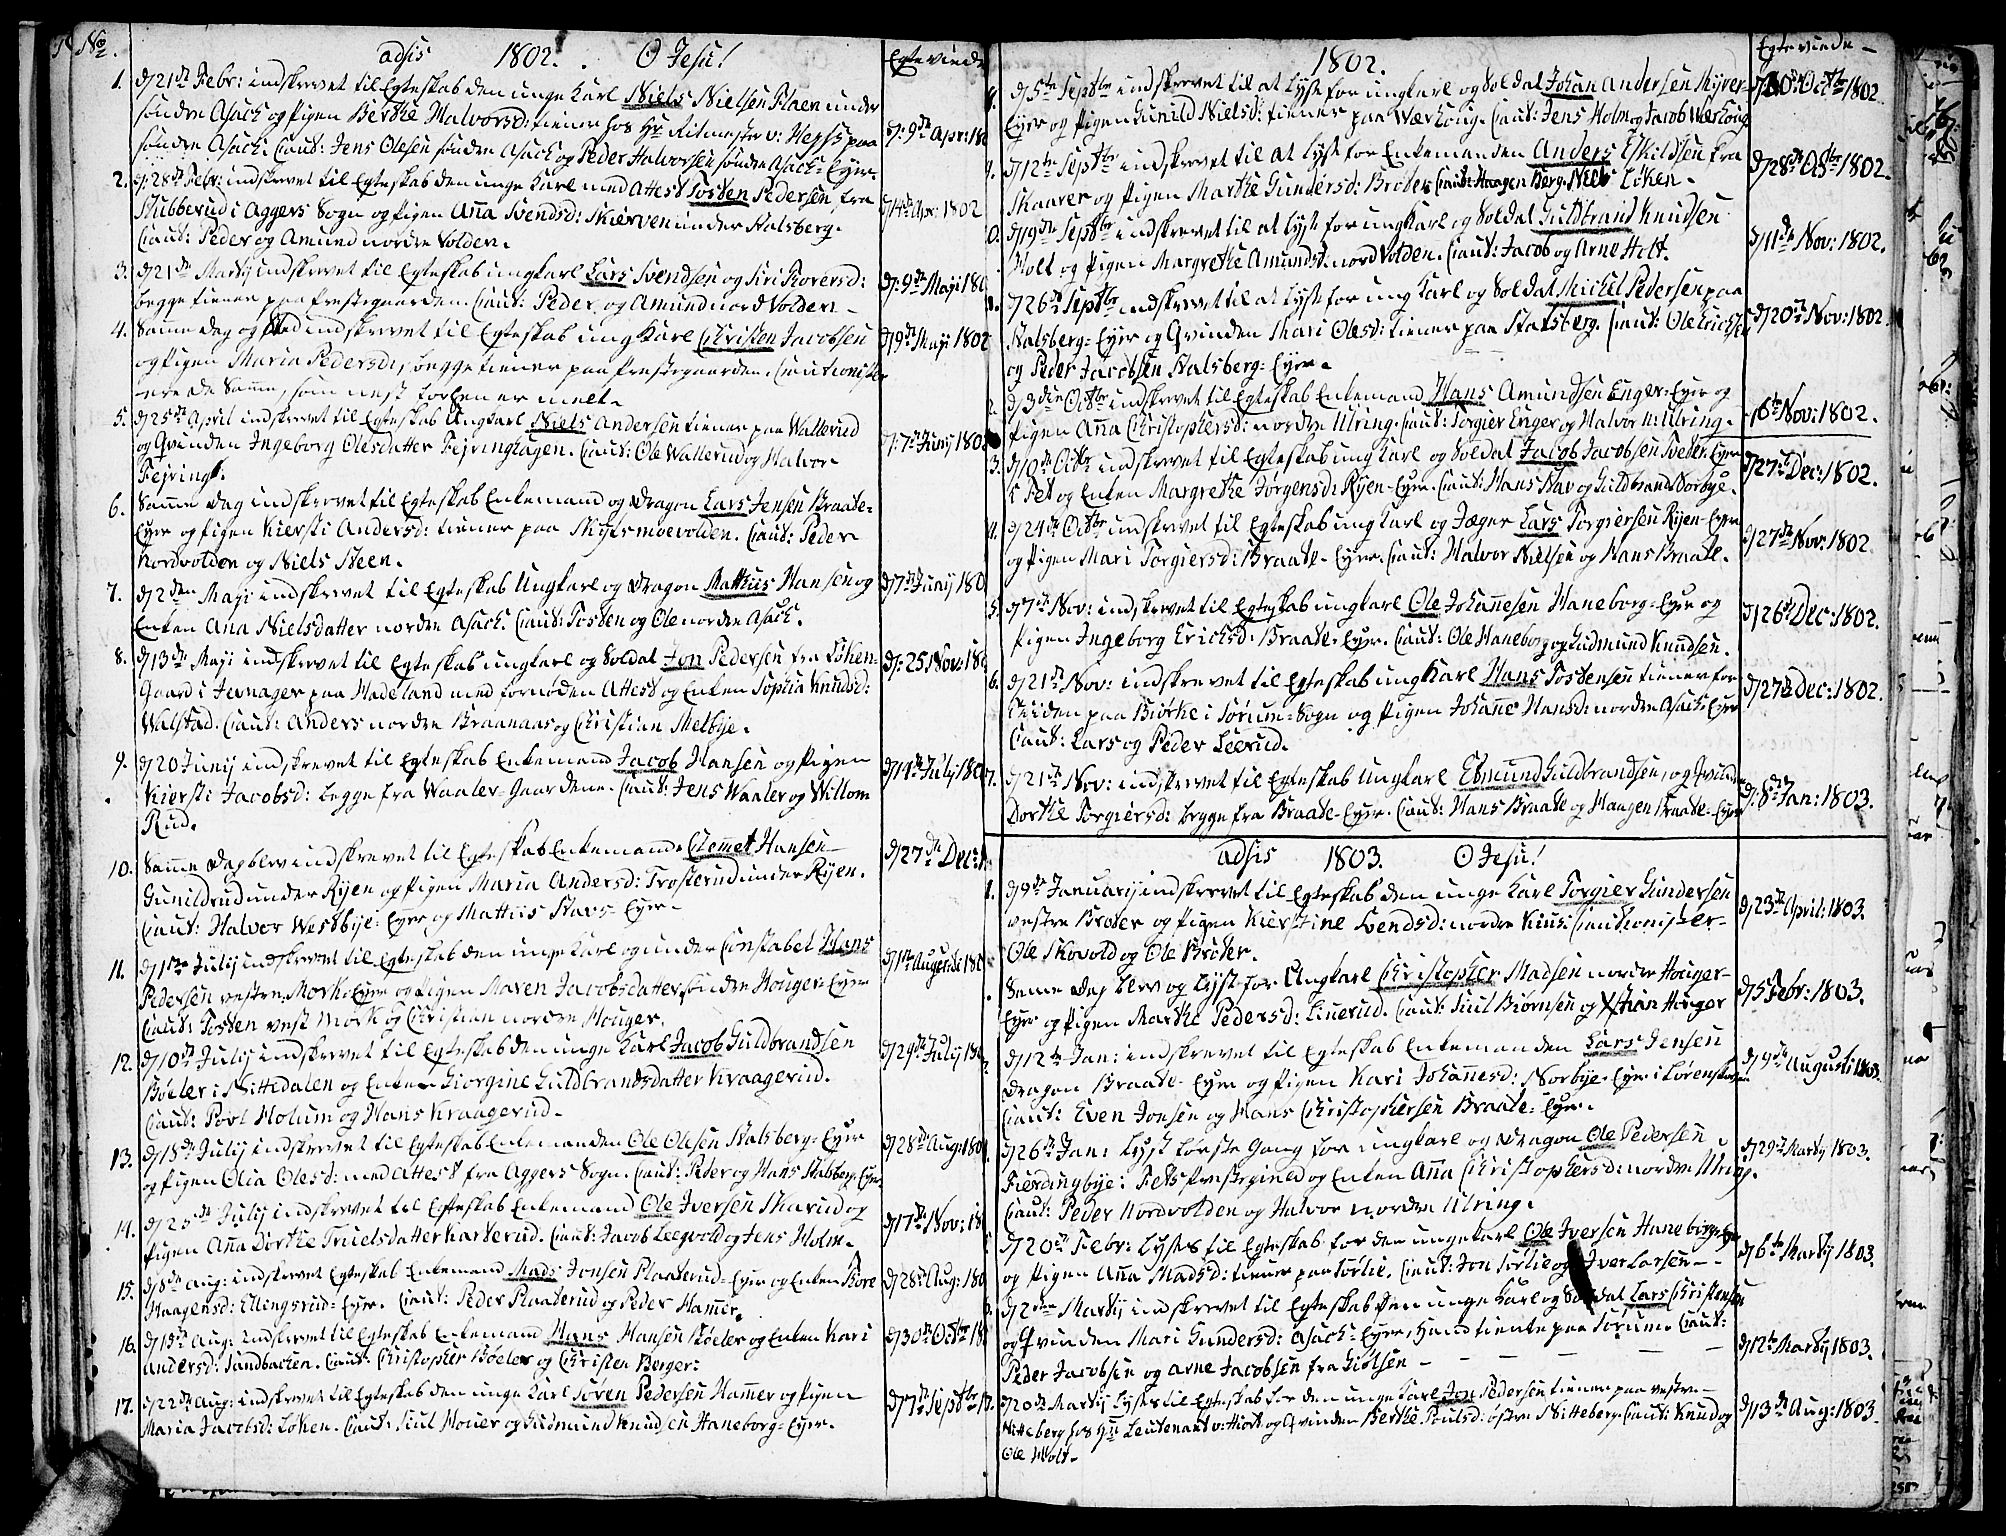 No. adsis 1802. O Jesu! Egteviede
1. d 21de Febr: indskrevet til Egteskab den unge Karl Niels Nielsen Plaen under
søndre Asach og Pigen Berthe Halvorsd: tiener hos Hr Ritmester v: Hesss paa
søndre Asach. Caut: Jens Olesen søndre Asach og Peder Halvorsen søndre Asach-Eyer. d: 9de Apr: 180
2. d: 28de Febr: indskrevet til Egteskab den unge Karl med Attest Tosten Pedersen fra
Stubberud i Aggers Sogn og Pigen Anna Svendsd: Skierven under Stalsberg. d 14de Apr: 1802
Caut: Peder og Amund nordre Volden.
3. d 21de Martij indskrevet til Egteskab ungkarl Lars Svendsen og Siri Toversd: d: 9de Maji 180
begge tiener paa Prestegaarden. Caut: Peder og Amund nord Volden
4. Samme dag og Sted indskrevet til Egteskab ung Karl Christen Jacobsen d 9de Maji 1802
og Pigen Maria Pedersd:, begge tiener paa Prestegaarden. Cautionister
ere de samme, som nest forhen er melt.
5. d 25de April indskrevet til Egteskab Ungkarl Niels Andersen tiener paa Wallerud
og Qvinden Ingeborg Olesdatter Fejringhagen. Caut: Ole Wallerud og Halvor d: 7de Junij 180
Fejring.
6. Samme dag indskrevet til Egteskab Enkemand og Dragon Lars Jensen Braate-
Eyer og Pigen Kiersti Andersd: tiener paa Skytsmoevolden. Caut: Peder
Nordvolden og Niels Steen.
7. d 2den Maji indskrevet til Egteskab Ungkarl og Dragon Mathis Hansen og d 7de Junij 180
Enken Ana Nielsdatter nordre Asach. Caut: Tosten og Ole nordre Asach.
8. d 13de Maji indskrevet til Egteskab ungkarl og Soldat Jon Pedersen fra Løken- d: 25. Nov: 180
Gaard i Jevnager paa Hadeland med fornøden Attest og Enken Sophia Knudsd:
Walstad. Caut: Anders nordre Braanaas og Christian Melbye.
9. d 20 Junij indskrevet til Egteskab Enkemand Jacob Hansen og Pigen d 14de July 180
Kiersti Jacobsd: begge fra Waaler-Gaardene. Caut: Jens Waaler og Willom
Rud.
10. Samme Dag blev indskrevet til Egteskab Enkemand Clemet Hansen d 27de Dec:
Gunildrud under Ryen og Pigen Maria Andersd: Trosterud under Ryen.
Caut: Halvor Westbye-Eyer og Mattiis Stavs-Eyer
11. d 1ste Julij indskrevet til Egteskab den unge Karl og under Constabel Hans d 1ste Augusti 180
Pedersen vestre Mork-Eyer og Pigen Maren Jacobsdatter søndre Houger-Eyer
Caut: Tosten vest Mork og Christian nordre Houger.
12. d 10de Julij indskrevet til Egteskab den unge Karl Jacob Guldbrandsen d 29de July 180
Bøeler i Nittedalen og Enken Giorgine Guldbrandsdatter Kraagerud.
Caut: Povl Holum og Hans Kraagerud
13. d 18de Julij indskrevet til Egteskab Enkemanden Ole Olesen Stalsberg-Eyer d 28de Aug: 180
og Pigen Olia Olesd: med Attest fra Aggers Sogn. Caut: Peder og Hans Stalsberg-Eyer
14. d 25de Julij indskrevet til Egteskab Enkemand Ole Iversen Skarud og d 17de Nov: 18
Pigen Anna Dorthe Truelsdatter Karterud. Caut: Jacob Leegvold og Jens Holm.
15. d 8de Aug: indskrevet Egteskab Enkemand Mads Jonsen Plaaterud-Eyer og Enken Tore d 28de Aug: 180
Haagensd: Ellingsrud-Eyer. Caut: Peder Plaaterud og Peder Hammer.
16. d 15de Aug: indskrevet til Egteskab Enkemand Hans Hansen Bøeler og Enken Kari d 30te Octbr 18
Andersd: Sandbachen. Caut: Christopher Bøeler og Christen Berger:
17. d 22de Aug: indskrevet til Egteskab den unge Karl Søren Pedersen Hammer og Pigen d 7de Septbr
Maria Jacobsd: Løken. Caut: Siul Mouer og Gudmund Knudsen Haneborg-Eyer.
1802. Egteviede
d 5te Septbr indskrevet til at lyse for ungkarl og Soldat Johan Andersen Myrer-
Eyer og Pigen Gunild Nielsd: tiener paa Wærhoug. Caut: Jens Holm og Jacob Wærhoug d 30: Octbr 1802
9. d 12te Septbr indskrevet til at lyse for Enkemanden Anders Eskildsen fra d 28de Octbr 1802.
Skaarer og Pigen Marthe Gundersd: Brøter Caut: Haagen Berg. Niels Løken.
0. d 19de Septbr indskrevet til at lyse for ungkarl og Soldat Guldbrand Knudsen d 11de Nov: 1802.
Holt og Pigen Margrethe Amundsd: nord Volden. Caut: Jacob og Arne Holt.
d 26de Septbr indskrevet til at lyse for ung Karl og Soldat Michel Pedersen paa d 20de Nov: 1802
Stalsberg-Eyer og Qvinden Mari Olesd: tiener paa Stalsberg. Caut: Ole Erichs
og Peder Jacobsen Stalsberg-Eyer.
2. d 3die Octbr indskrevet til Egteskab Enkemand Hans Amundsen Enger-Eyer og 6te Nov: 1802.
Pigen Anna Christophersd: nordre Ulring. Caut: Torgier Enger og Halvor n: Ulring.
3. d 10de Octbr indskrevet til Egteskab ung Karl og Soldat Jacob Jacobsen Tveter-Eyer d 27de Dec: 1802.
i Fet og Enken Margrethe Jørgensd: Ryen-Eyer. Caut: Hans Stav og Guldbrand Norbye.
4. d 24de Octbr indskrevet til Egteskab ung Karl og Jæger Lars Torgiersen Ryen-Eyer d 27de Nov: 1802
og Pigen Mari Torgiersd: Braate-Eyer. Caut: Halvor Nielsen og Hans Braate.
5. d 7de Nov: indskrevet til Egteskab ungkarl Ole Johannesen Haneborg-Eyer og d 26de Dec: 1802.
Pigen Ingeborg Erichsd: Braate-Eyer. Caut: Ole Haneborg og Gudmund Knudsen.
6. d 21de Nov: indskrevet til Egteskab ung Karl Hans Tostensen tiener for d 27de Dec: 1802.
Tiiden paa Biørke i Sørum-Sogn og Pigen Johanne Hansd: nordre Asach-Eyer
Caut: Lars og Peder Leerud.
7. d 21de Nov: indskrevet til Egteskab Ungkarl Edmund Guldbrandsen, og Qvinden d: 8de Jan: 1803.
Dorthe Torgiersd: begge fra Braate-Eyer. Caut: Hans Braate og Haagen Braate-Eyer
adsis 1803. O Jesu!
1. d 9de Januarij indskrevet til Egteskab den unge Karl Torgier Gundersen d 23de April: 1803.
vestre Brøter og Pigen Kierstine Svendsd: nordre Kius. Cautionister
Ole Skovold og Ole Brøter.
Samme Dag blev og lyst for Ungkarl Christopher Madsen nordre Houger- d 5 Febr: 1803.
Eyer og Pigen Marthe Pedersd: Linerud. Caut: Siul Biørnsen og Xstian Houger
d 12te Jan: indskrevet til Egteskab Enkemanden Lars Jensen d 9de Augusti 1803.
Dragon Braate-Eyer og Pigen Kari Johannesd: Norbye-Eyer i Lørenskoven
Caut: Even Jonsen og Hans Christophersen Braate-Eyer.
d 26de Jan: lyst første Gang for ungkarl og Dragon Ole Pedersen d 29de Martij 1803.
Fierdingbye i Fets Prestegield og Enken Anna Christophersd: nordre Ulring.
Caut: Peder Nordvolden og Halvor nordre Ulring.
d 20de Febr: lystes til Egteskab for den unge Karl Ole Iversen Haneborg-Eyer d 6te Martij 1803.
og Pigen Anna Madsd: tiener paa Sørlie. Caut: Jon Sørlie og Iver Larsen
d 2den Martij indskrevet til Egteskab den unge Karl og Soldat Lars Christensen
og Qvinden Mari Gundersd: Asach-Eyer, hand tiente paa Sørum. Caut: d 12te Martij 1803.
Peder Jacobsen og Arne Jacobsen fra Giølsen
d 20de Martij lystes til Egteskab for den unge Karl Jon Pedersen tiener paa vestre d 13de Aug: 1803.
Nitteberg hos Hr Leutenant v: Hiort og Qvinden Berthe Poulsd: østre Nitteberg. Caut: Knud og
Ole Holt